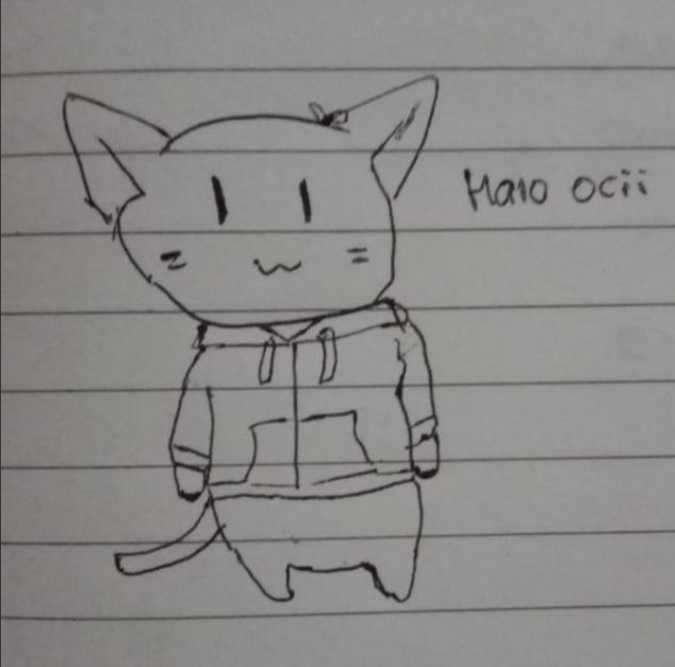 Halo ocii